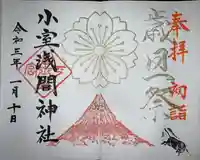 奉拝
初詣
歳旦祭
小室浅間神社
令和三年一月十日